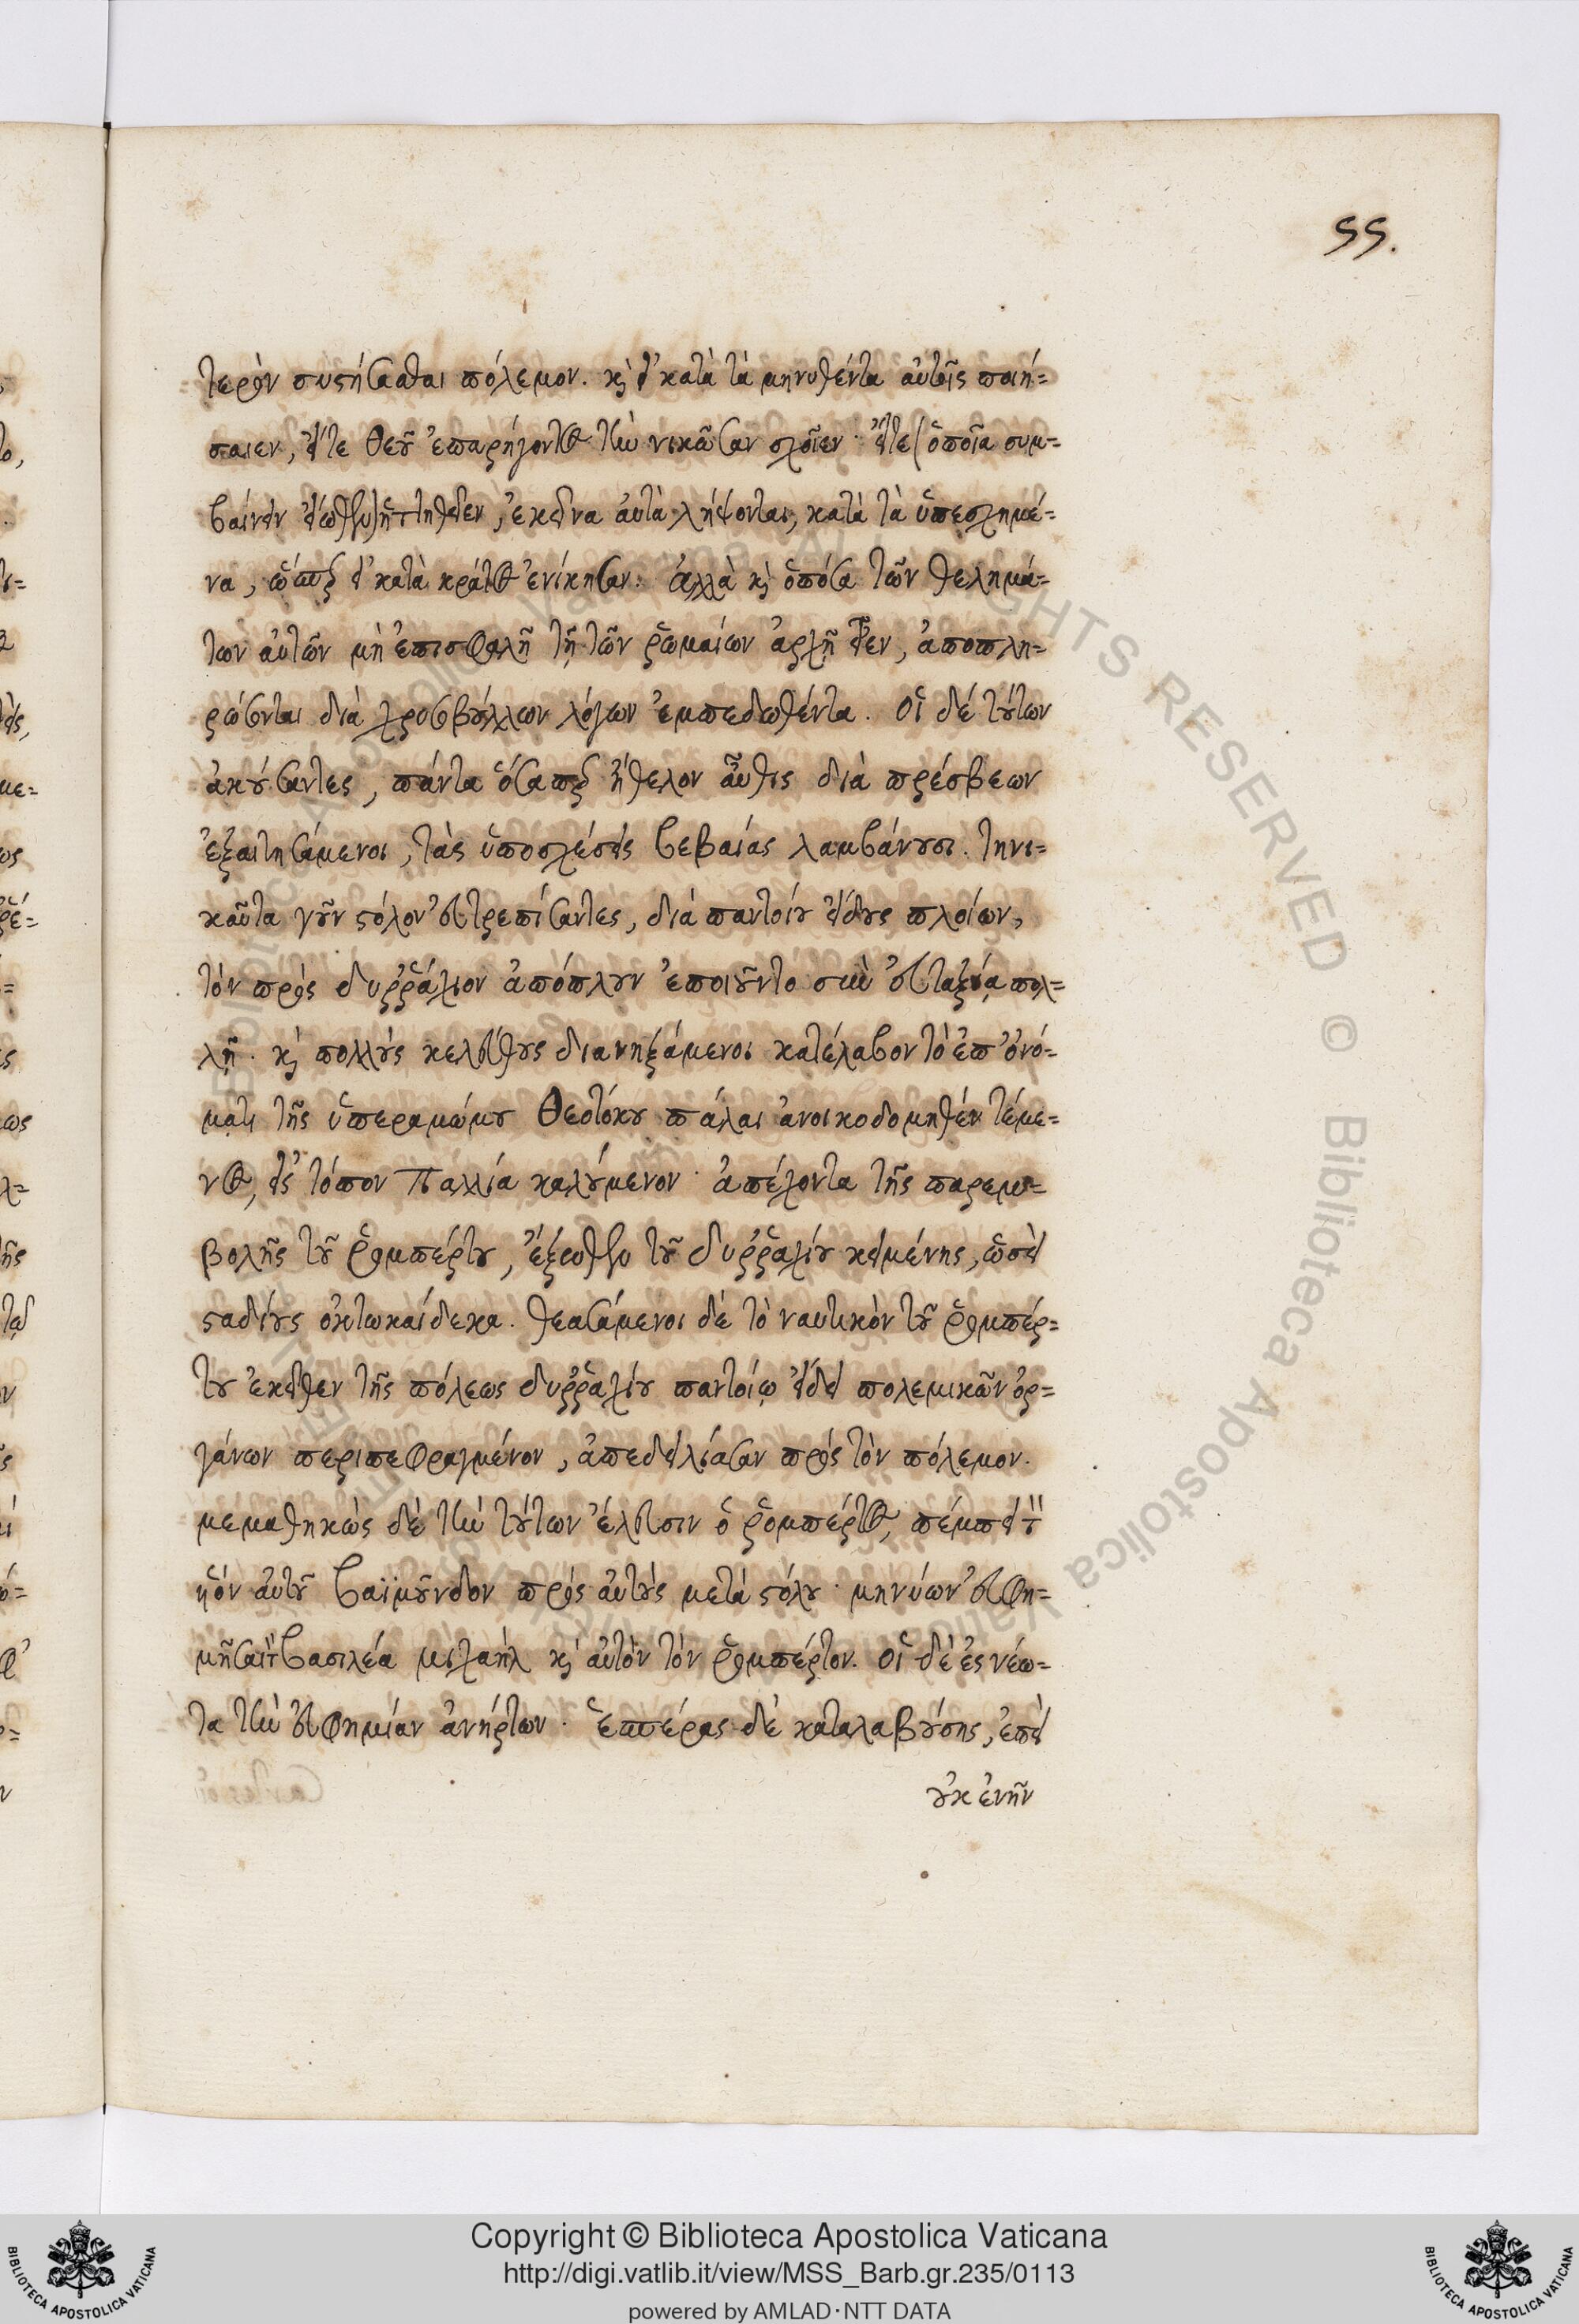 55.
τερὸν συστήσασθαι πόλεμον. καὶ εἰ κατὰ τὰ μηνυθέντα αὐτοῖς ποιή=
σαιεν, εἴτε Θεοῦ ἐπαρήγοντος τὴν νικῶσαν σχοῖεν· εἴτε ὁποῖα συμ=
βαίνειν εἴωθεν ἡττηθεῖεν, ἐκεῖνα αὐτὰ λήψονται, κατὰ τὰ ὑπεσχημέ=
να, ὥσπερ εἰ κατὰ κράτος ἐνίκησαν. ἀλλὰ καὶ ὁπόσα τῶν θελημά=
των αὐτῶν μὴ ἐπισφαλῆ τῇ τῶν ῥωμαίων ἀρχῇ εἶεν, ἀποπλη=
ρώσονται διὰ χρυσοβούλλων λόγων ἐμπεδωθέντα. Οἱ δέ τούτων
ἀκούσαντες, πάντα ὅσαπερ ἤθελον αὖθις διὰ πρέσβεων
ἐξαιτησάμενοι, τὰς ὑποσχέσεις βεβαίας λαμβάνουσι. τηνι=
καῦτα γοῦν στόλον εὐτρεπίσαντες, διὰ παντοίου εἴδους πλοίων,
τὸν πρὸς δυῤῥάχιον ἀπόπλουν ἐποιοῦντο σὺν εὐταξίᾳ πολ=
λῇ. καὶ πολλοὺς κελεύθους διανηξάμενοι κατέλαβον τὸ ἐπ' ὀνό=
ματι τῆς ὑπεραμώμου Θεοτόκου πάλαι ἀνοικοδομηθέν τέμε=
νος, εἰς τόπον Παλλία καλούμενον· ἀπέχοντα τῆς παρεμ=
βολῆς τοῦ ῥομπέρτου, ἔξωθεν τοῦ δυῤῥαχίου κειμένης, ὡσεὶ
σταδίους ὀκτωκαίδεκα. θεασάμενοι δέ τὸ ναυτικὸν τοῦ ῥομπέρ=
του ἐκεῖθεν τῆς πόλεως δυῤῥαχίου παντοίῳ εἴδει πολεμικῶν ὀρ=
γάνων περιπεφραγμένον, ἀπεδειλίασαν πρὸς τὸν πόλεμον.
μεμαθηκὼς δὲ τὴν τούτων ἔλευσιν ὁ ῥομπέρτος, πέμπει τὸν
υἱόν αὐτοῦ βαϊμοῦνδον πρὸς αὐτοὺς μετὰ στόλου· μηνύων εὐφη=
μῆσαι τὸν βασιλέα μιχαήλ καὶ αὐτὸν τὸν ῥομπέρτον. Οἱ δὲ ἐς νέω=
τα τὴν εὐφημίαν ἀνήρτων. ἑσπέρας δὲ καταλαβούσης, ἐπεὶ
οὐκ ἐνῆν
Copyright © Biblioteca Apostolica Vaticana
http://digi.vatlib.it/view/MSS_Barb.gr.235/0113
powered by AMLAD·NTT DATA